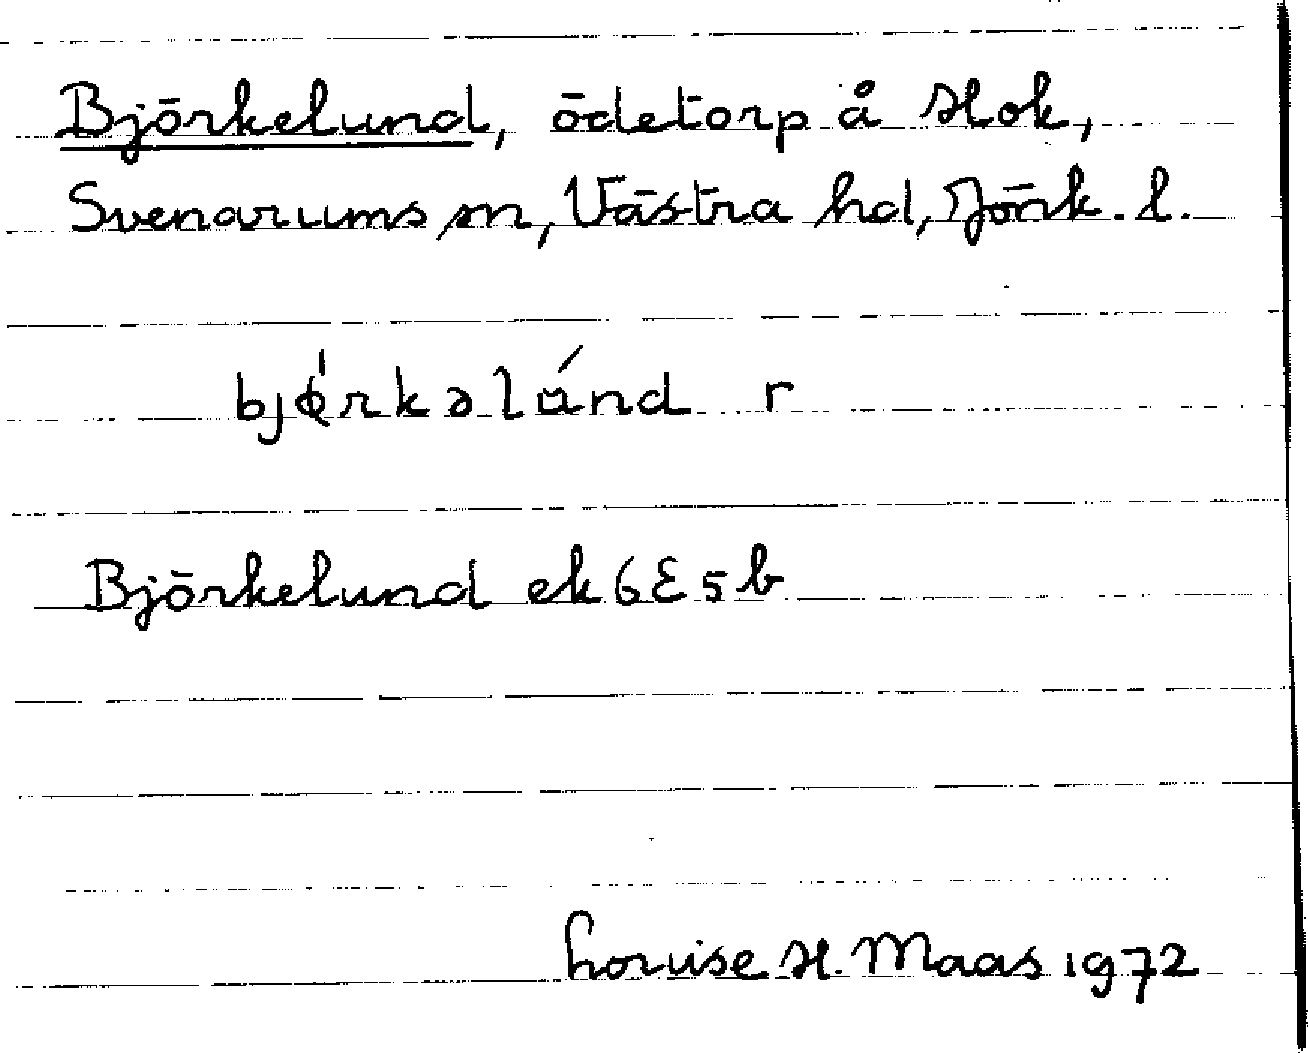 Björkelund, ödetorp å Hok,
Svenarums sn, Västra hd, Jönk. l.
bjǿrkəlúnd r
Björkelund ek 6E5b
Louise H. Maas 1972